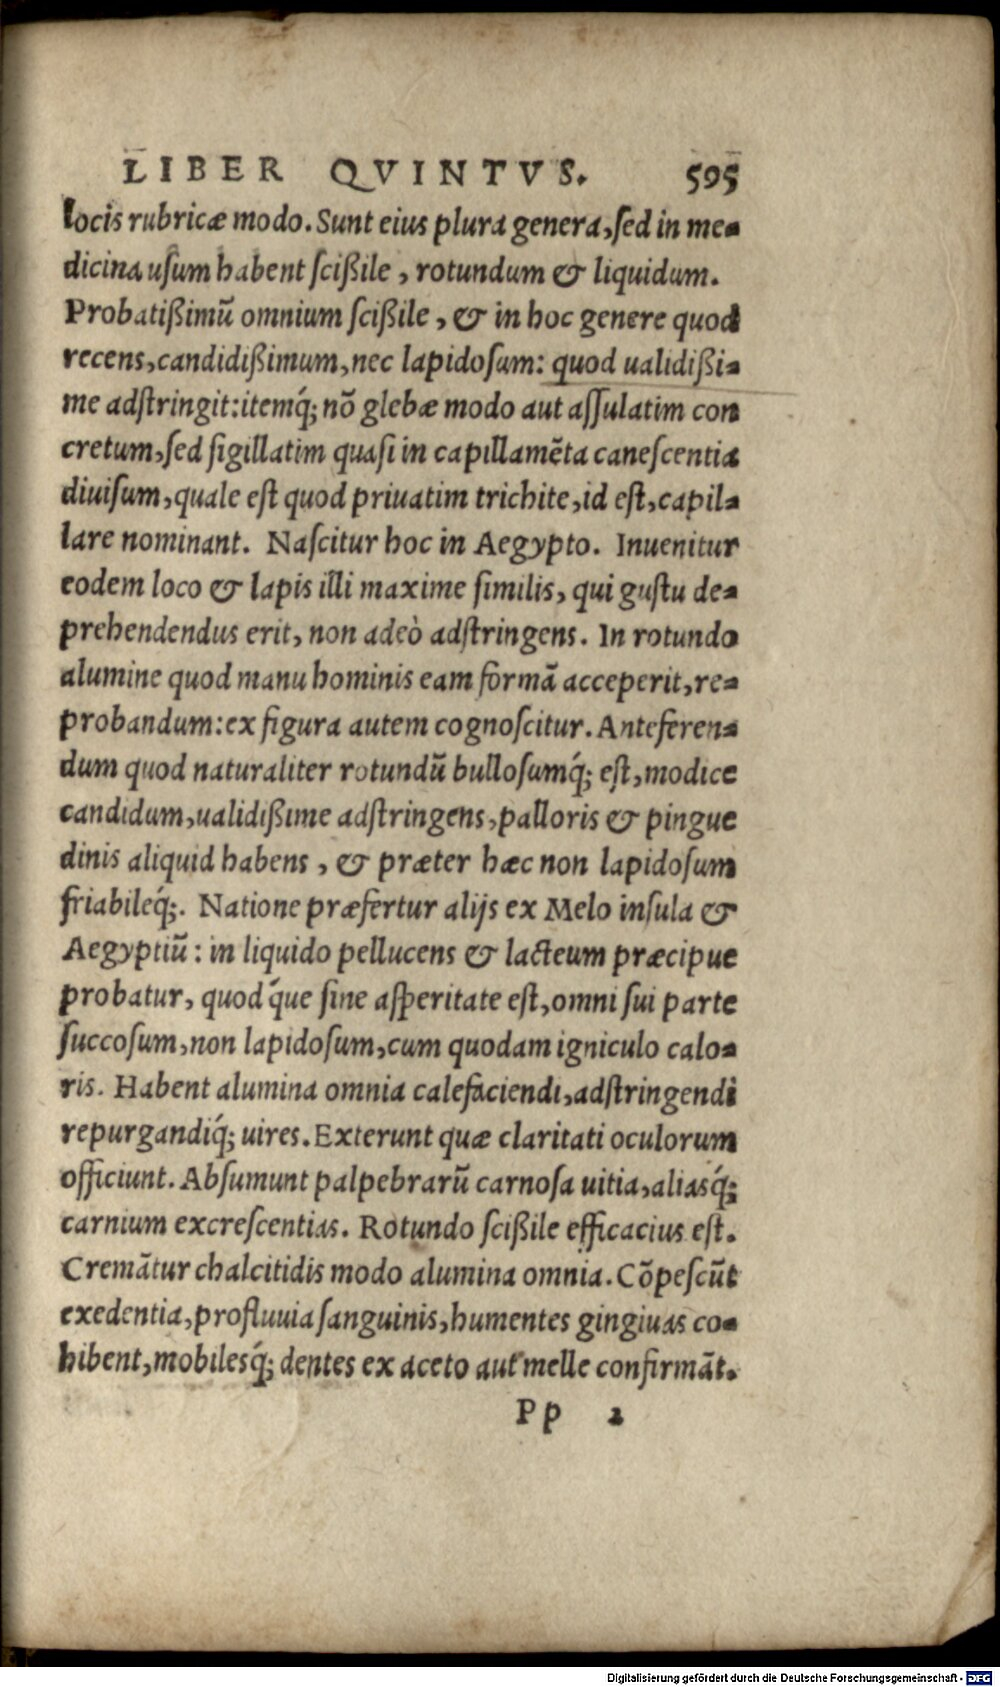 LIBER QVINTVS. 595
locis rubricæ modo. Sunt eius plura genera, ſed in me-
dicina uſum habent ſcißile, rotundum & liquidum.
Probatißimū omnium ſcißile, & in hoc genere quod
recens, candidißimum, nec lapidoſum: quod ualidißi-
me adſtringit: itemq́; nō glebæ modo aut aſſulatim con
cretum, ſed ſigillatim quaſi in capillamēta caneſcentia
diuiſum, quale eſt quod priuatim trichite, id eſt, capil-
lare nominant. Naſcitur hoc in Aegypto. Inuenitur
eodem loco & lapis illi maxime ſimilis, qui guſtu de-
prehendendus erit, non adeò adſtringens. In rotundo
alumine quod manu hominis eam formā acceperit, re-
probandum: ex figura autem cognoſcitur. Anteferen-
dum quod naturaliter rotundū bulloſumq́; eſt, modice
candidum, ualidißime adſtringens, palloris & pingue
dinis aliquid habens, & præter hæc non lapidoſum
friabileq́;. Natione præfertur alijs ex Melo inſula &
Aegyptiū: in liquido pellucens & lacteum præcipue
probatur, quod q́ue ſine aſperitate eſt, omni ſui parte
ſuccoſum, non lapidoſum, cum quodam igniculo calo-
ris. Habent alumina omnia calefaciendi, adſtringendi
repurgandiq́; uires. Exterunt quæ claritati oculorum
officiunt. Abſumunt palpebrarū carnoſa uitia, aliasq́;
carnium excreſcentias. Rotundo ſcißile efficacius eſt.
Cremātur chalcitidis modo alumina omnia. Cōpeſcūt
exedentia, profluuia ſanguinis, humentes gingiuas co-
hibent, mobilesq́; dentes ex aceto aut melle confirmāt.
Pp 2
Digitalisierung gefördert durch die Deutsche Forschungsgemeinschaft - DFG